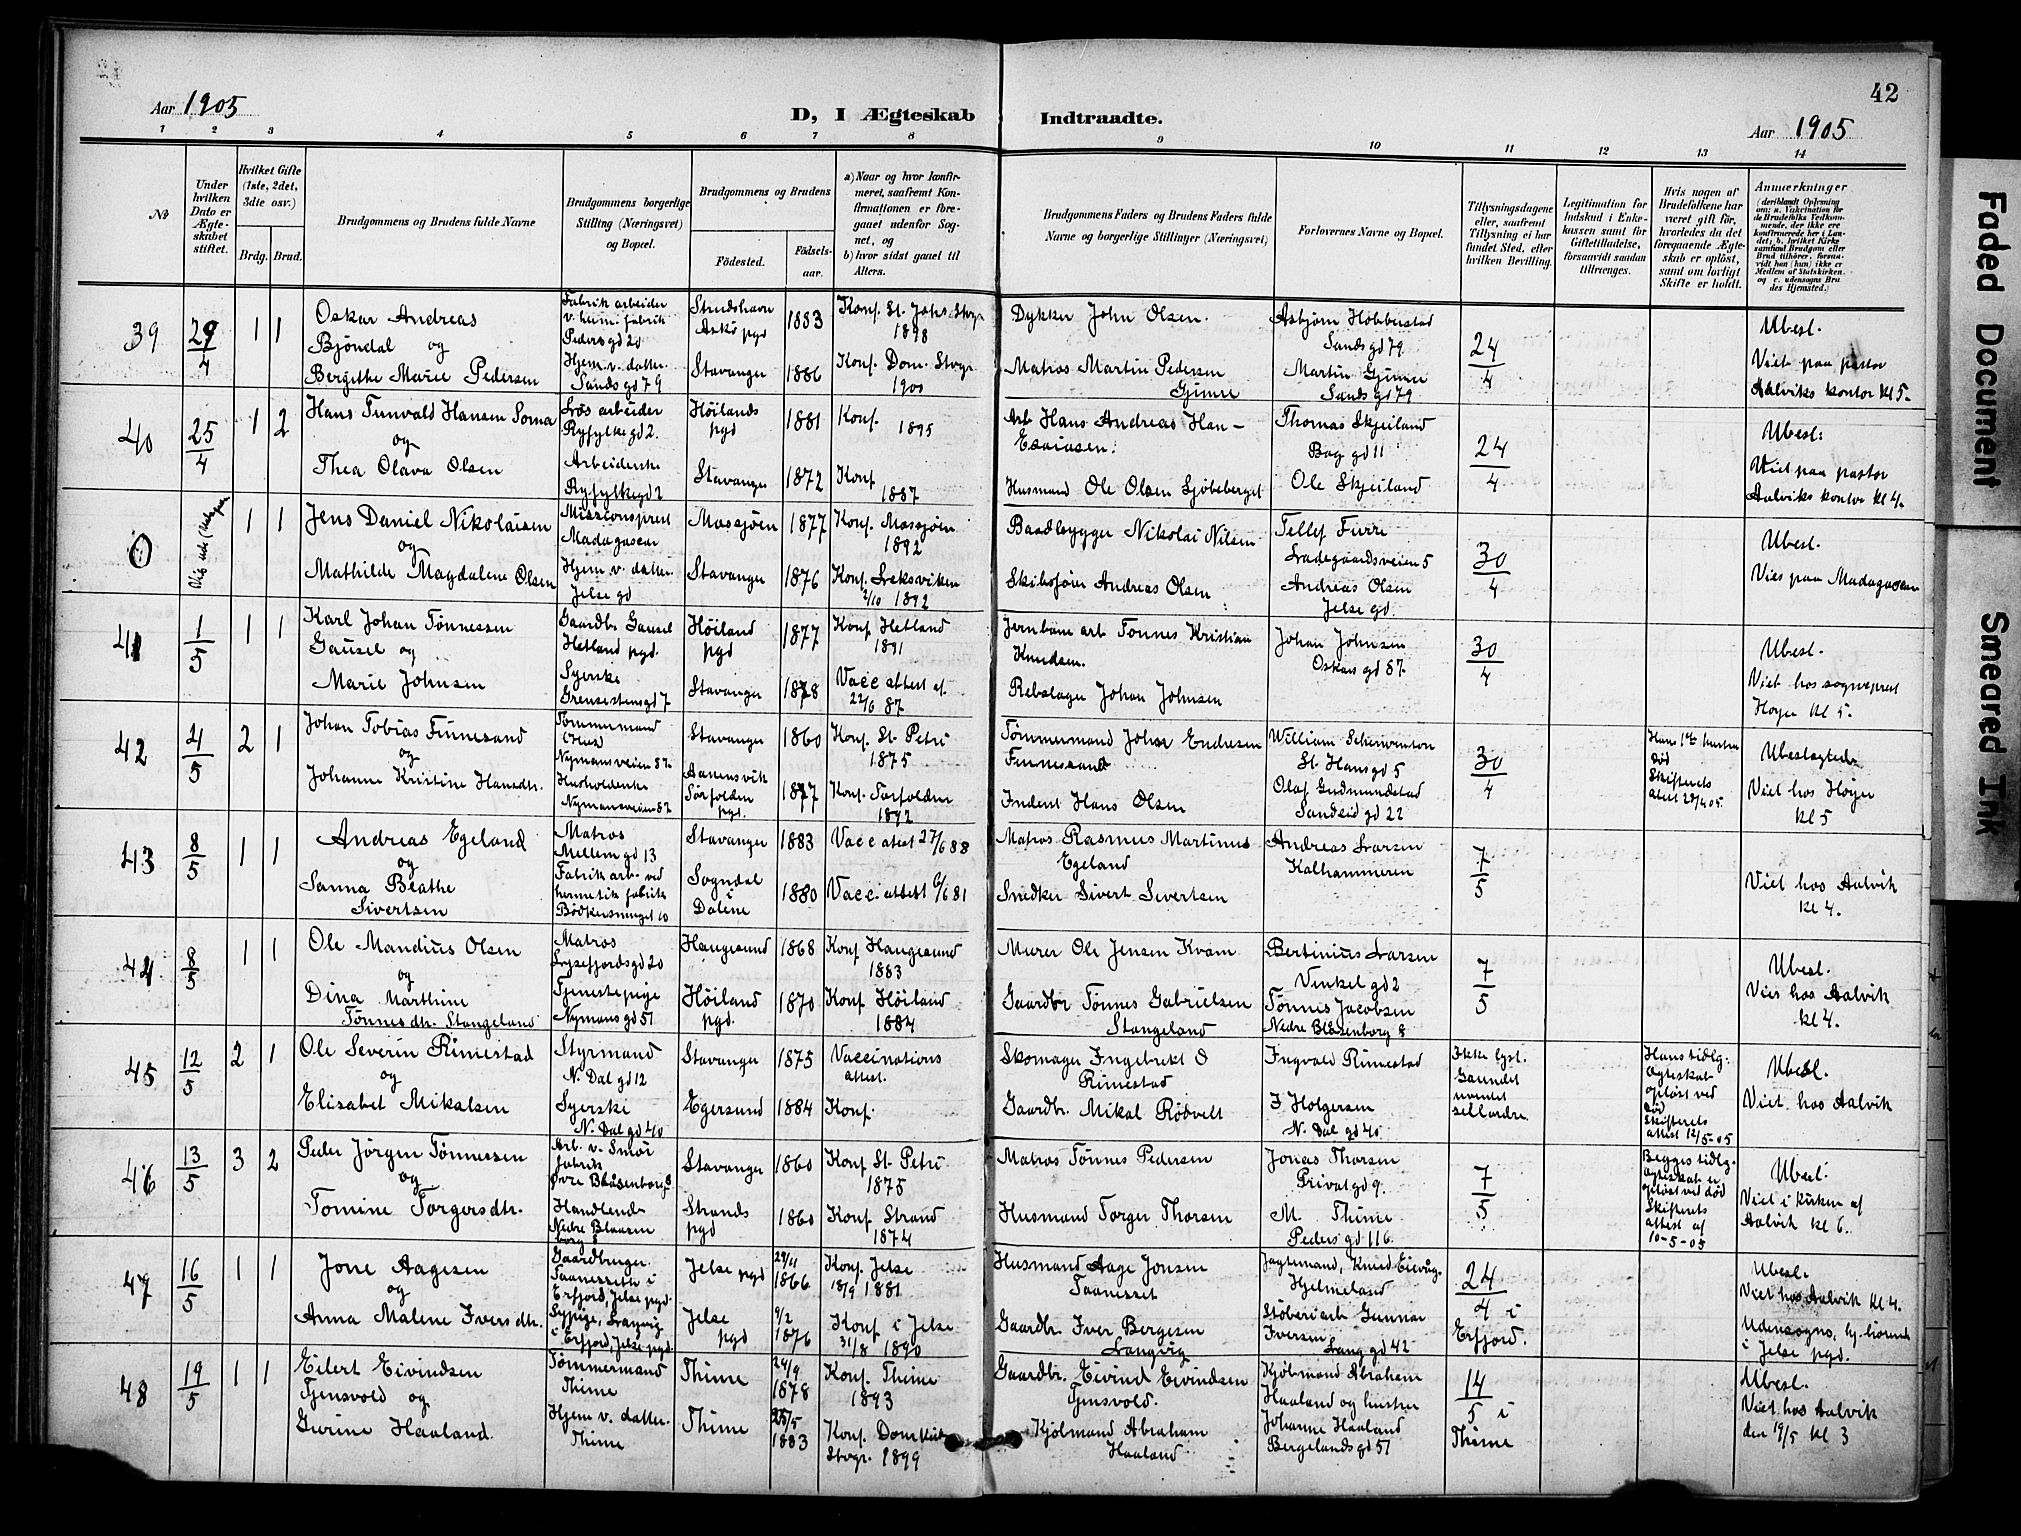 42
Aar 1905
D, I Ægteskab Indtraadte.
Aar 1905
1 2 3 4 5 6 7 8 9 10 11 12 13 14
No
Under hvilken Dato er Ægteskabet stiftet.
Hvilket Gifte (1ste, 2det, 3die osv.)
Brdg. Brud.
Brudgommens og Brudens fulde Navne
Brudgommens borgerlige Stilling (Næringsvei) og Bopæl.
Brudgommens og Brudens
Fødested.
Fødselsaar.
a) Naar og hvor konfirmeret, saafremt Konfirmationen er foregaaet udenfor Sognet, og
b) hvor sidst gaaet til Alters.
Brudgommens Faders og Brudens Faders fulde Navne og borgerlige Stillinger (Næringsvei)
Forlovernes Navne og Bopæl.
Tillysningsdagene eller, saafremt Tillysning ei har fundet Sted, efter hvilken Bevilling.
Legitimation for Indskud i Enkekassen samt for Giftetilladelse, forsaavidt saadan tiltrænges.
Hvis nogen af Brudefolkene har været gift før, hvorledes da det foregaaende Ægteskab er opløst, samt om lovligt Skifte er holdt.
Anmærkninger
39 29/4 1 1
Oskar Andreas
Bjöndal og
Bergithe Marie Pedersen
Fabrik arbeider
v. herm. fabrik
Peders gd 20
Hjem. v. datter
Sands gd 79
Strudshavn
Askö pgd
Stavanger
1883
1886
Konf. St. Johs. Stvgr
1898
Konf. Dom. Stvgr
1900
Dykker John Olsen.
Matros Martin Pedersen
Gjimre
Asbjørn Hobberstad
Sands gd 79
Martin Gjimre
Sands gd 79
24/4
Ubesl.
Viet paa pastor
Aalviks kontor kl 5.
40 25/4 1 2
Hans Tunvald Hansen Soma
og
Thea Olava Olsen
Løs arbeider
Ryfylke gd 2.
Arbeiderske
Ryfylke gd 2
Höilands
pgd
Stavanger
1881
1872
Konf.
1895
Konf
1887
Arb Hans Andreas Han-
Esaiasen.
Husmand Ole Olsen Sjöbeberget
Thomas Skjeiland
Bag gd 11
Ole Skjeiland
24/4
Ubesl:
Viet paa pastor
Aalviks kontor kl 4.
0 1 1
Jens Daniel Nikolaisen
og
Mathilde Magdalene Olsen
Missionsprest
Madagascar
Hjem. v. datter.
Jelse gd
Mossjöen
Stavanger
1877
1876
Konf. Mossjöen
1892
Konf. Leksviken
2/10 1892
Baadbygger Nikolai Nilsen
Skibsfører Andreas Olsen
Tellef Furre
Ladegaardsveien 5
Andreas Olsen
Jelse gd.
30/4
Ubesl.
Vies paa Madagascar
41 1/5 1 1
Karl Johan Tönnessen
Gausel og
Marie Johnsen
Gaardbr. Gausel
Hetland pgd.
Syerske
Grensestensgd 7
Höiland
pgd
Stavanger
1877
1878
Konf Hetland
1891
Vacc attest af.
22/6 87
Jernbane arb Tönnes Kristian
Knudsen.
Rebslager Johan Johnsen
Johan Johnsen
Oskars gd 87.
30/4
Ubesl.
Viet hos sognepræst
Høyer kl 5.
42 4/5 2 1
Johan Tobias Finnesand
og
Johanne Kristine Hansdtr.
Tömmermand
(Hus)
Nymansveien 87.
Husholderske
Nymansveien 87
Stavanger
Aanensvik
Sørfolden
pgd.
1860
1877
Konf. St. Petri
1875
Konf. Sørfolden
1892
Tømmermand Johs Endresen
Finnesand
Inderst Hans Olsen
William Schwenzon
St. Hans gd 5
Olaf Gudmundstad
Sandeid gd 22
30/4
Hans 1te hustru
død
Skifterets
attest 29/4 05.
Ubeslægtede
Viet hos Høyer
kl 5
43 8/5 1 1
Andreas Egeland
og
Sanna Beathe
Sivertsen
Matros
Mellem gd 13
Fabrik arb. ved
hermetik fabrik
Bödkersmuget 10
Stavanger
Sogndal
i
Dalene
1883
1880
Vacc attest 27/6 88
Vacc. attest 6/6 81
Matros Rasmus Martinus
Egeland
Snedker Sivert Sivertsen
Andreas Larsen
Kalhammeren
7/5
Viet hos Aalvik
kl 4.
44 8/5 1 1
Ole Mandius Olsen
og
Dina Marthine
Tönnesdtr. Stangeland
Matros
Lysefjords gd 20
Tjenestepige
Nymans gd 51
Haugesund
Höiland
pgd.
1868
1870
Konf Haugesund
1883
Konf Höiland
1884
Murer Ole Jensen Kvam
Gaardbr Tönnes Gabrielsen
Stangeland
Bertinius Larsen
Vinkel gd 2
Tönnes Jacobsen
Nedre Blåsenborg 8
7/5
Ubesl.
Vies hos Aalvik
kl 4.
45 12/5 2 1
Ole Severin Rimestad
og
Elisabet Mikalsen
Styrmand
N. Dal gd 12
Syerske
N. Dal gd 40
Stavanger
Egersund
1875
1884
Vaccinations
attest.
Konf.
Skomager Ingebrekt O
Rimestad
Gaardbr. Mikal Rödvelt
Ingvald Rimestad
J Holgersen
N. Dal gd 40
Ikke lyst.
Hans tidlg.
ægteskab
opløst ved
død
Skifterets
attest 12/5-05
Ubesl.
Viet hos Aalvik
46 13/5 3 2
Peder Jörgen Tönnessen
og
Tomine Torgersdtr.
Arb. v. Smör
fabrik
Øvre Blåsenborg 8
Handlende
Nedre Blaasen
borg 8
Stavanger
Strands
pgd
1860
1860
Konf St. Petri
1875
Konf Strand
1874
Matros Tönnes Pedersen
Husmand Torger Thorsen
Jonas Thorsen
Privat gd 9.
M. Thime
Peders gd 116
7/5
Begges tidlg.
ægteskab er
opløst ved død
Skifterets
attest af
10-5-05
Ubesl:
Viet i kirken af
Aalvik kl 6.
47 16/5 1 1
Jone Aagesen
og
Anna Malene Iversdtr.
Gaardbruger
Taanesseth i
Erfjord, Jelse pgd.
Sypige, Langvig
i Erfjord, Jelse pgd.
Jelse pgd
Jelse
pgd
29/11
1866
9/2
1876
Konf. Jelse
18/9 1881
Konf i Jelse
31/8 1890
Husmand Aage Jonsen
Taanesset
Gaardbr. Iver Bergesen
Langvig
Hjelmeland
Støberiarb Gunnar
Iversen
Lang gd 42
24/4 i
Erfjord.
Ubesl.
Viet hos Aalvik kl 4.
Udensogns, hj. hörende
i Jelse pgd.
48 19/5 1 1
Eilert Eivindsen
Tjensvold og
Gurine Haaland.
Tømmermand
Thime
Hjem v. datter.
Thime
Thime
Thime
24/9
1878
25/5
1883
Konf. Thime
1893
Konf. Domkirk
Stvgr. 1899
Gaardbr. Eivind Eivindsen
Tjensvold.
Kjöbmand Abraham
Haaland
Kjöbmand Abraham
Haaland og hustru
Johanne Haaland
Bergelands gd 51
14/5 i
Thime
Ubesl.
Viet hos Aalvik
den 19/5 kl 3
Faded Document
Smeared Ink